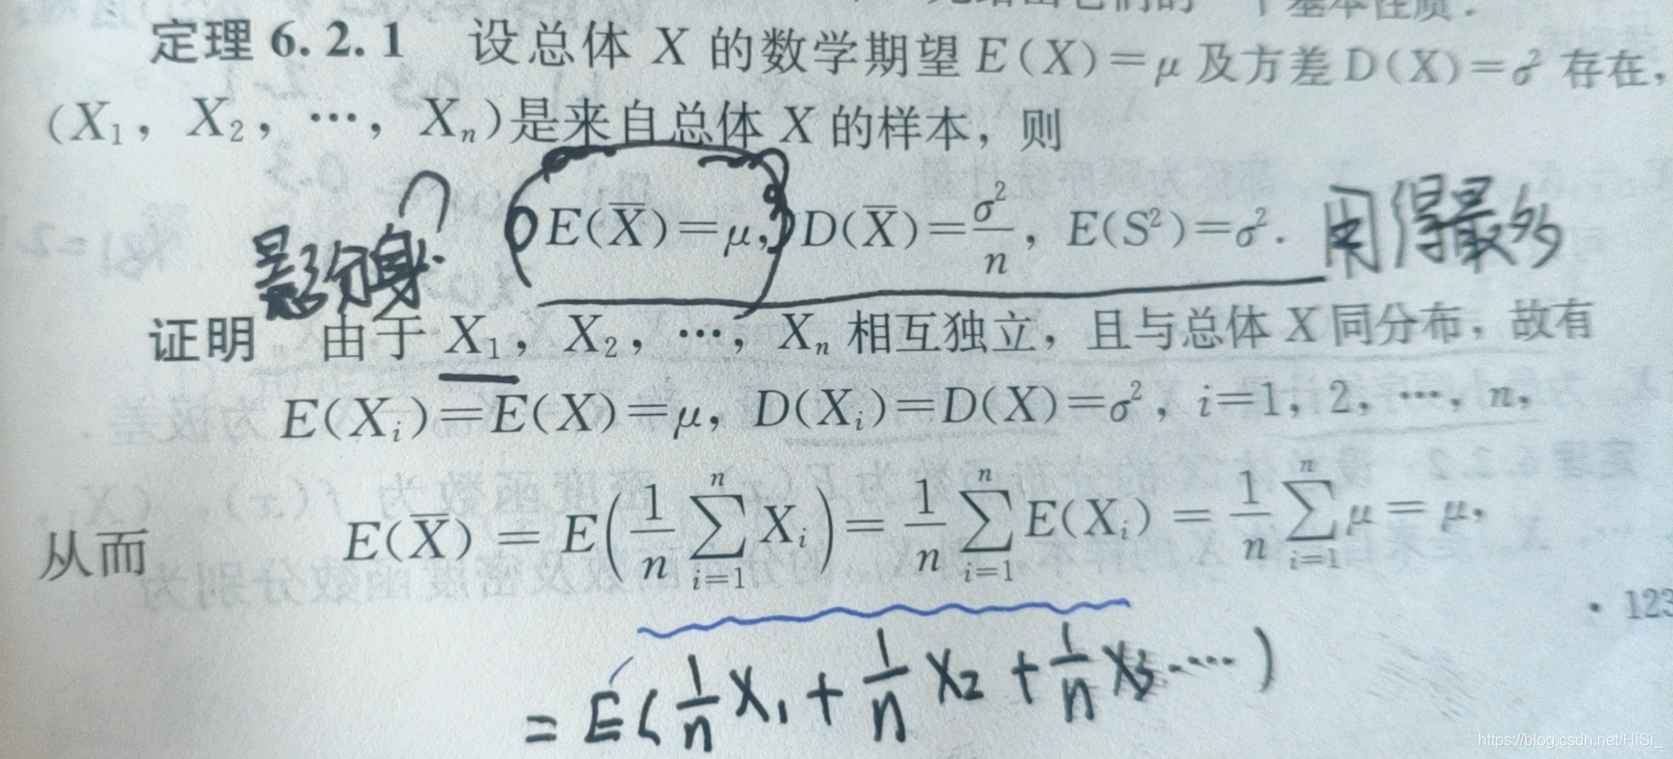 定理 6.2.1 设总体 X 的数学期望 E(X)=μ 及方差 D(X)=σ² 存在,
(X₁, X₂, ⋯, Xₙ)是来自总体 X 的样本, 则
E(X̅)=μ, D(X̅)=σ²/n, E(S²)=σ². 用得最多
影分身
证明 由于 X₁, X₂, ⋯, Xₙ 相互独立, 且与总体 X 同分布, 故有
E(Xᵢ)=E(X)=μ, D(Xᵢ)=D(X)=σ², i=1, 2, ⋯, n,
从而 E(X̅) = E(1/n ∑ᵢ₌₁ⁿ Xᵢ) = 1/n ∑ᵢ₌₁ⁿ E(Xᵢ) = 1/n ∑ᵢ₌₁ⁿ μ = μ,
· 123
= E(1/n X₁ + 1/n X₂ + 1/n X₃ ⋯⋯)
https://blog.csdn.net/HiSi_